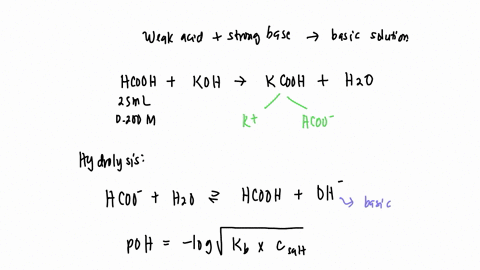 Weak acid + strong base → basic solution
HCOOH + KOH → KCOOH + H2O
25mL
0.200 M
K+ HCOO⁻
Hydrolysis:
HCOO⁻ + H2O ⇌ HCOOH + OH⁻
↳ basic
pOH = -log√(Kb x Csalt)